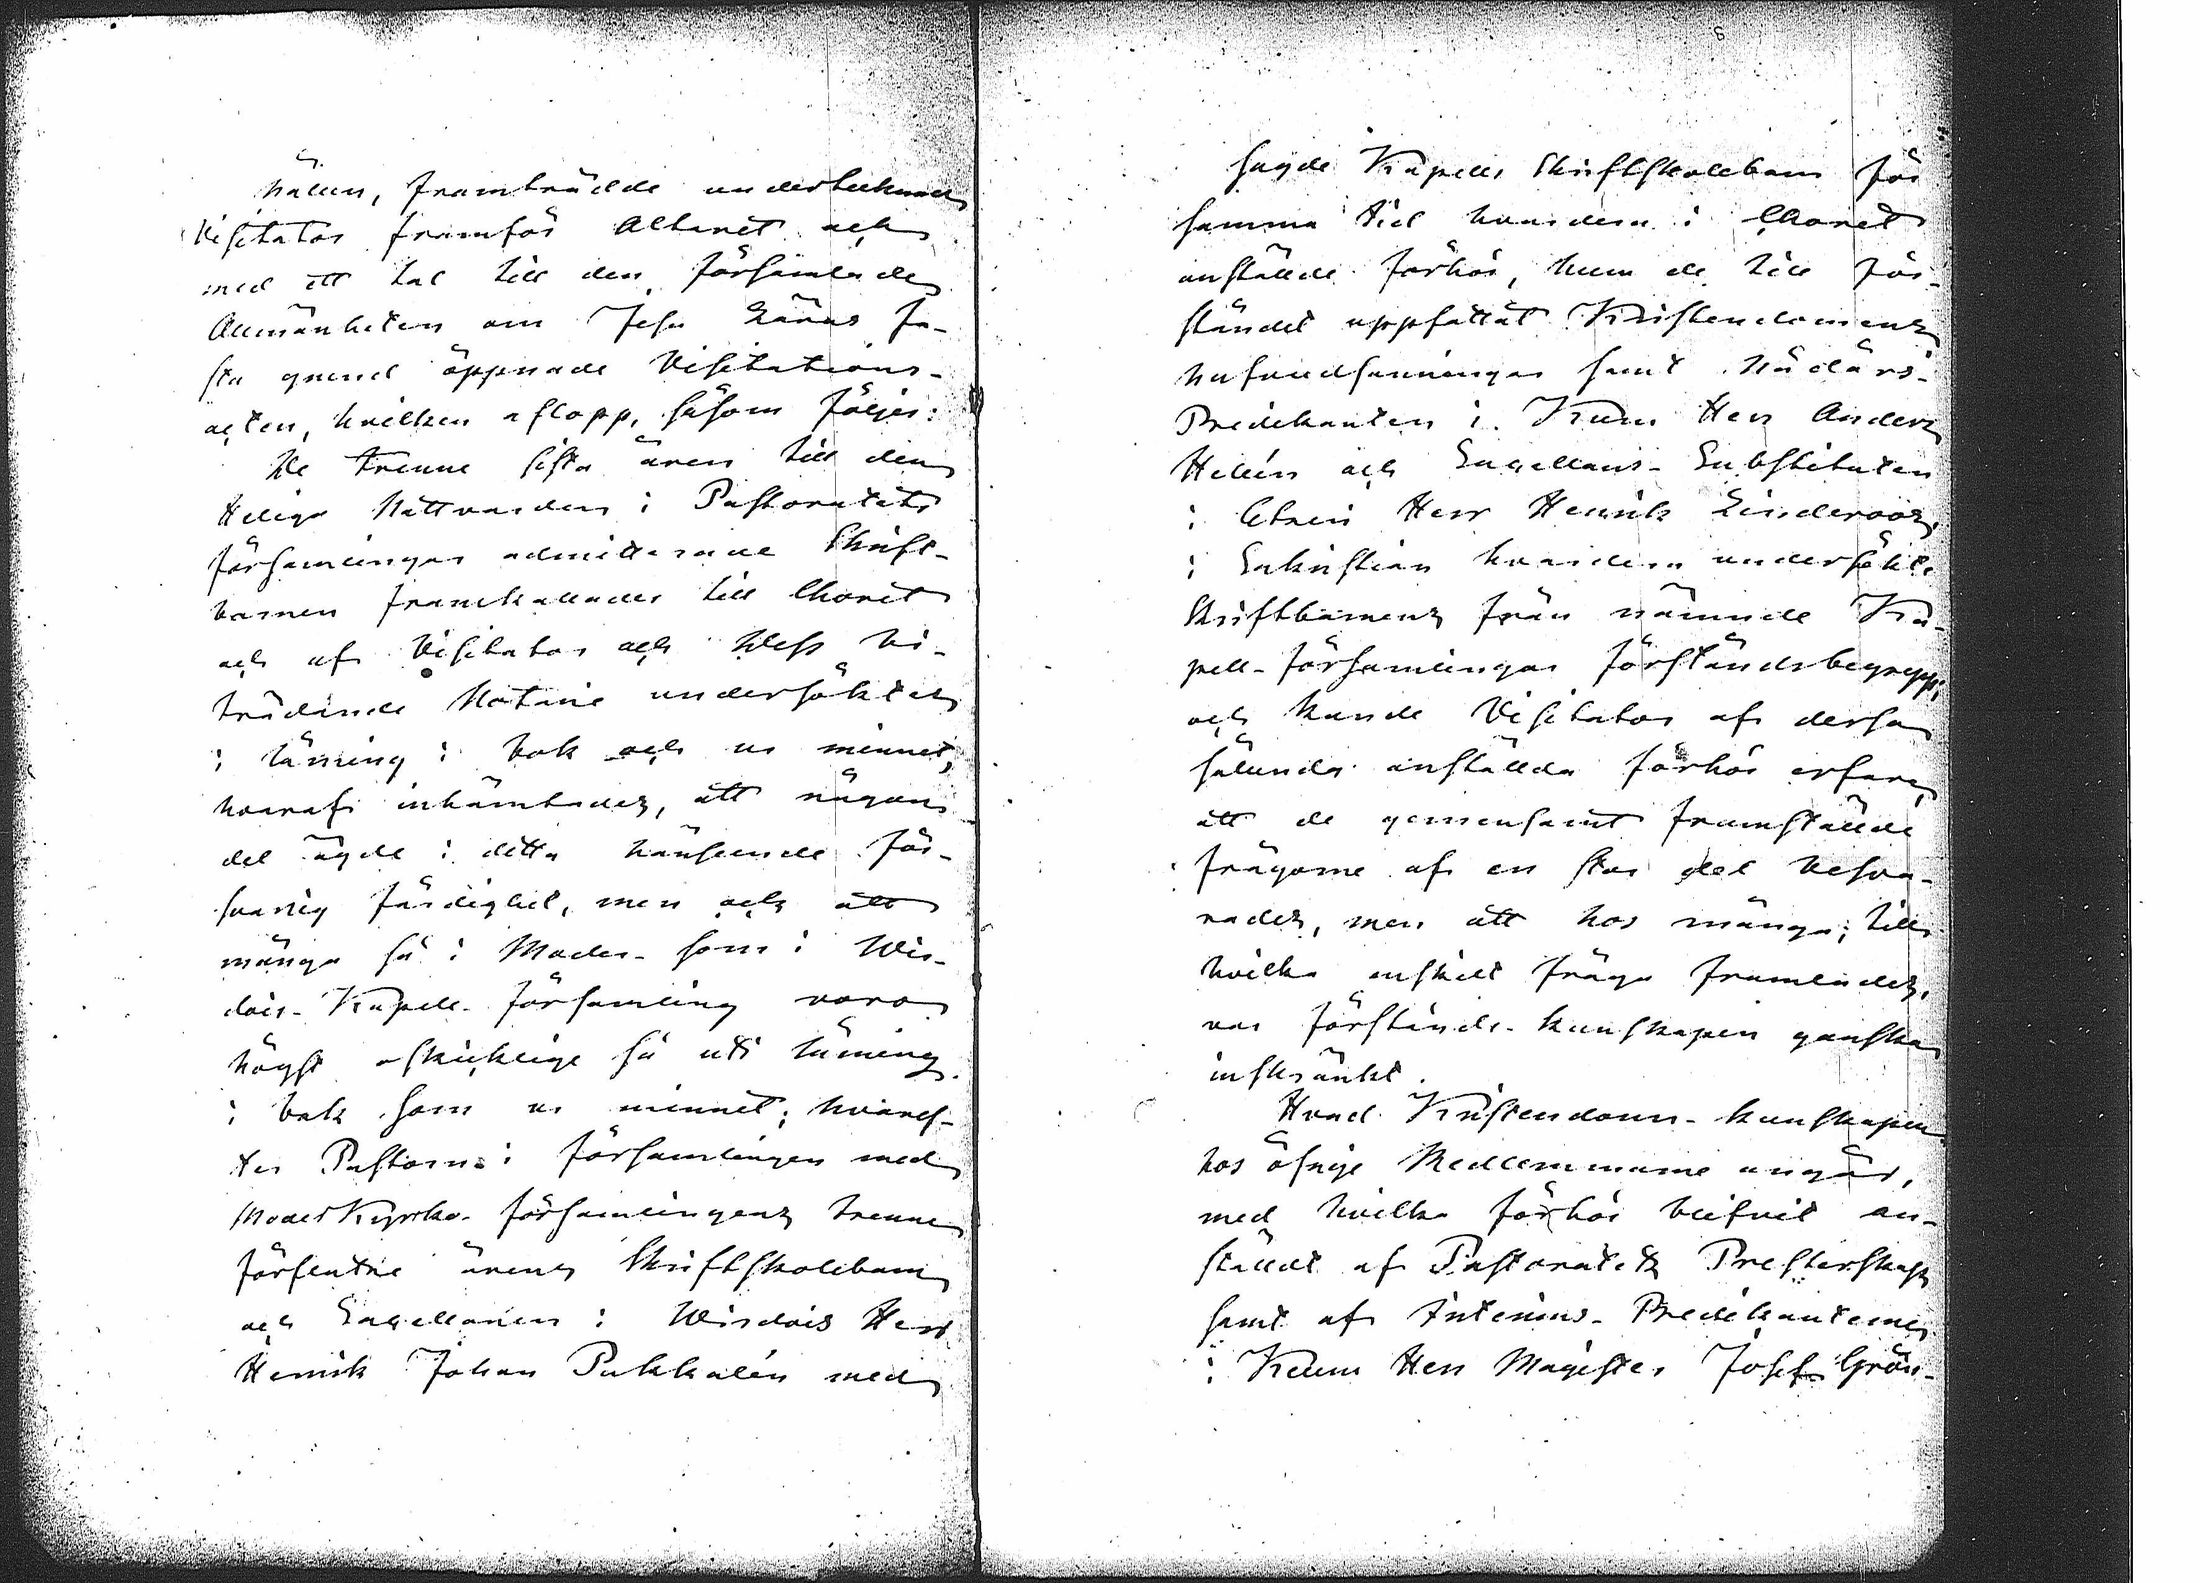 hållen, framträdde undertecknad
Visitator framför Altaret och
med ett tal till den församlade
Allmänheten om Jesu Läras fa-
sta grund öppnade Visitations-
acten, hvilken aflopp, såsom följer:
De trenne sista åren till den
Heliga Nattvarden i Pastoratets
församlingar admitterade Skrift-
barnen framkallades till Choret
och af Visitator och dess bi-
trädande Notarie undersöktes
i läsning i bok och ur minnet,
hvaraf inhämtades, att någon
del ägde i detta hänseende för-
svarlig färdighet, men ock att
många så i Moder- som i Wir-
dois- Kapell- församling voro
högst oskicklige så uti läsning
i bok som ur minnet; hvaref-
ter Pastorn i församlingen med
ModerKyrko- församlingens trenne
förflutne årens Skriftskolebarn
och Capellanen i Wirdois Herr
Henrik Johan Pukkalén med
8
sagde Kapells Skriftskolebarn för
samma tid hvardera i Choret
anställde förhör, huru de till för-
ståndet uppfattat Kristendomens
hufvudsanningar samt Nådårs-
Predikanten i Kuru Herr Anders
Hellén och Capellans- Substituten
i Etseri Herr Henrik Linderoos,
i Sakristian hvardera undersökte
Skriftbarnens från nämnde Ka-
pell- församlingar förståndsbegrepp;
och kunde Visitator af dessa
sålunda anställda förhör erfara,
att de gemensamt framställde
frågorne af en stor del besva-
rades, men att hos många, till
hvilka enskilt fråga framlades,
var förstånds- kunskapen ganska
inskränkt.
Hvad Kristendoms- kunskapen
hos öfrige Medlemmarne angår,
med hvilka förhör blifvit an-
stäldt af Pastoratets Presterskap
samt af Interims- Predikanterne
i Keuru Herr Magister Josef Grön-